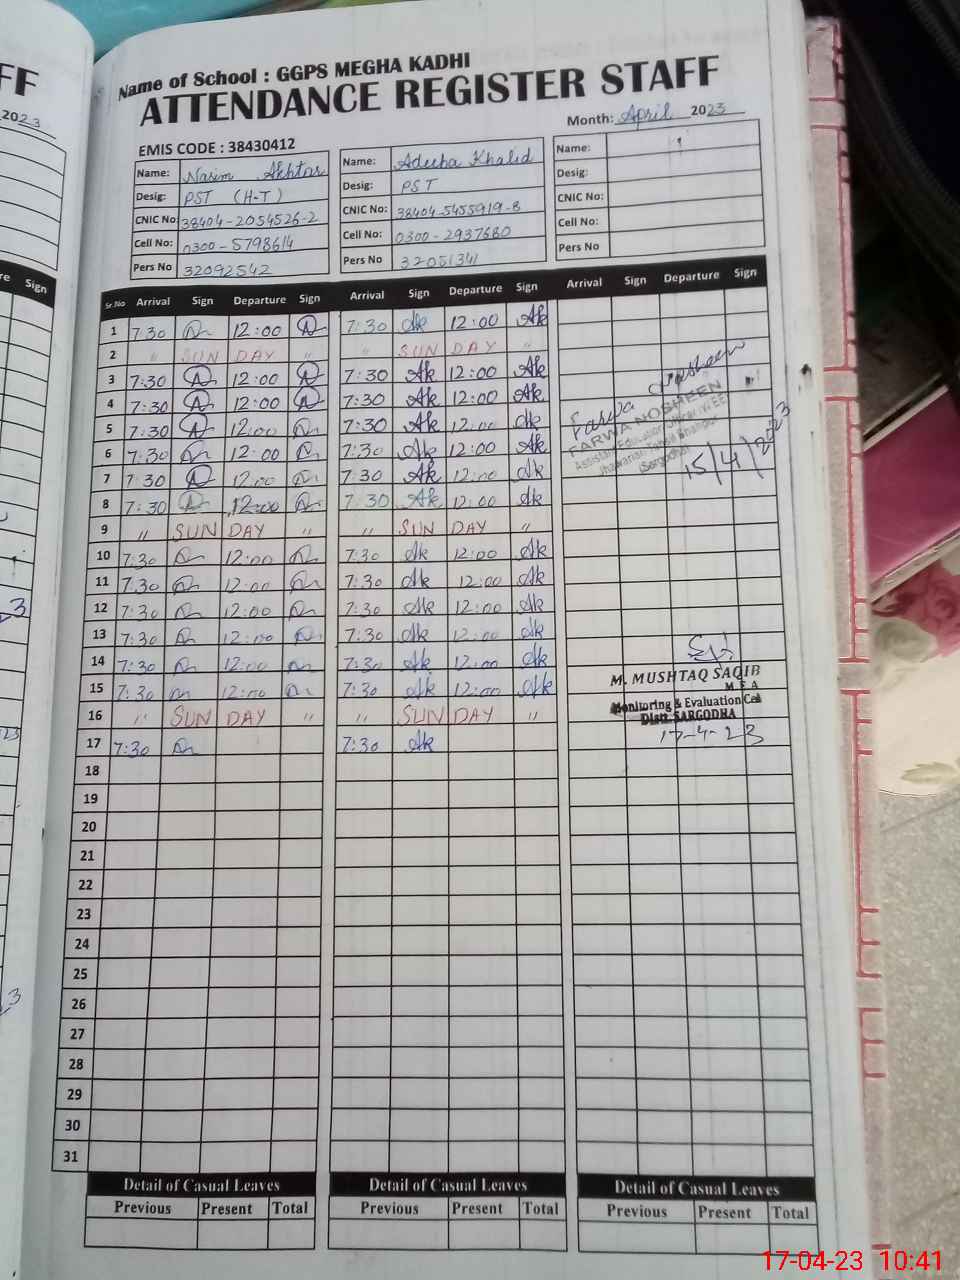 FF
2023
re Sign
Name of School : GGPS MEGHA KADHI
ATTENDANCE REGISTER STAFF
Month: April 2023
EMIS CODE : 38430412
Name: Nasim Akhtar
Desig: PST (H-T)
CNIC No: 38404-2054526-2
Cell No: 0300-5798614
Pers No 32092542
Name: Adeeba Khalid
Desig: PST
CNIC No: 38404-5455919-8
Cell No: 0300-2937680
Pers No 32051341
Name:
Desig:
CNIC No:
Cell No:
Pers No
Sr.No Arrival Sign Departure Sign Arrival Sign Departure Sign Arrival Sign Departure Sign
1 7:30 12:00 7:30 Ak 12:00 Ak
2 " SUN DAY " " SUN DAY "
3 7:30 12:00 7:30 Ak 12:00 Ak
4 7:30 12:00 7:30 Ak 12:00 Ak
5 7:30 12:00 7:30 Ak 12:00 Ak
6 7:30 12:00 7:30 Ak 12:00 Ak
7 7:30 12:00 7:30 Ak 12:00 Ak
8 7:30 12:00 7:30 Ak 12:00 Ak
9 " SUN DAY " SUN DAY "
10 7:30 12:00 7:30 Ak 12:00 Ak
11 7:30 12:00 7:30 Ak 12:00 Ak
12 7:30 12:00 7:30 Ak 12:00 Ak
13 7:30 12:00 7:30 Ak 12:00 Ak
14 7:30 12:00 7:30 Ak 12:00 Ak
15 7:30 12:00 7:30 Ak 12:00 Ak
16 " SUN DAY " " SUN DAY "
17 7:30 7:30 Ak
18
19
20
21
22
23
24
25
26
27
28
29
30
31
Farwa Nosheen
FARWA NOSHEEN
Assistant Education Officer
(Sargodha)
15/4/2023
M. MUSHTAQ SAQIB
M E A
Monitoring & Evaluation Cell
Distt. SARGODHA
17-4-23
Detail of Casual Leaves
Previous Present Total
Detail of Casual Leaves
Previous Present Total
Detail of Casual Leaves
Previous Present Total
17-04-23 10:41